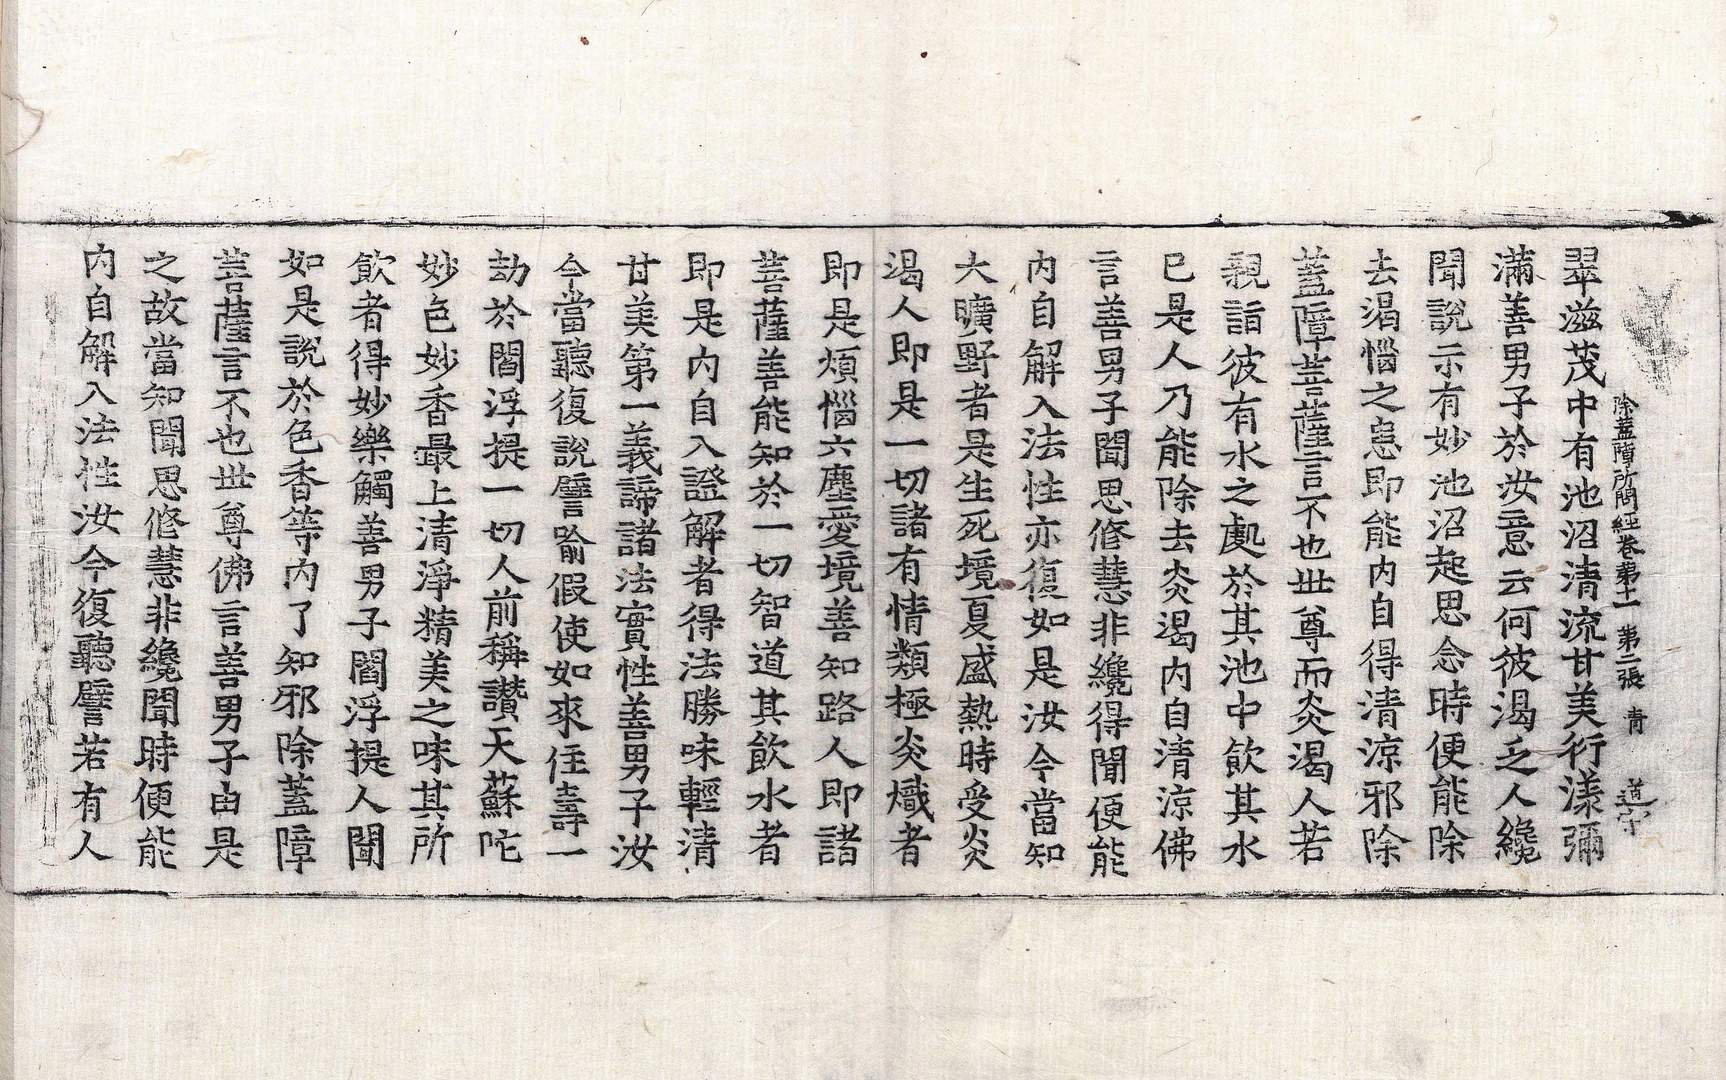 除蓋障所問經卷第十一 第二張 青 道守
翠滋茂中有池沼清流甘美衍漾彌
滿善男子於汝意云何彼渴乏人纔
聞說示有妙池沼起思念時便能除
去渴惱之患即能內自得清涼邪除
蓋障菩薩言不也世尊而炎渴人若
親詣彼有水之處於其池中飲其水
已是人乃能除去炎渴內自清涼佛
言善男子聞思修慧非纔得聞便能
內自解入法性亦復如是汝今當知
大曠野者是生死境夏盛熱時受炎
渴人即是一切諸有情類極炎熾者
即是煩惱六塵愛境善知路人即諸
菩薩善能知於一切智道其飲水者
即是內自入證解者得法勝味輕清
甘美第一義諦諸法實性善男子汝
今當聽復說譬喻假使如來住壽一
劫於閻浮提一切人前稱讚天蘇陀
妙色妙香最上清淨精美之味其所
飲者得妙樂觸善男子閻浮提人聞
如是說於色香等內了知邪除蓋障
菩薩言不也世尊佛言善男子由是
之故當知聞思修慧非纔聞時便能
內自解入法性汝今復聽譬若有人